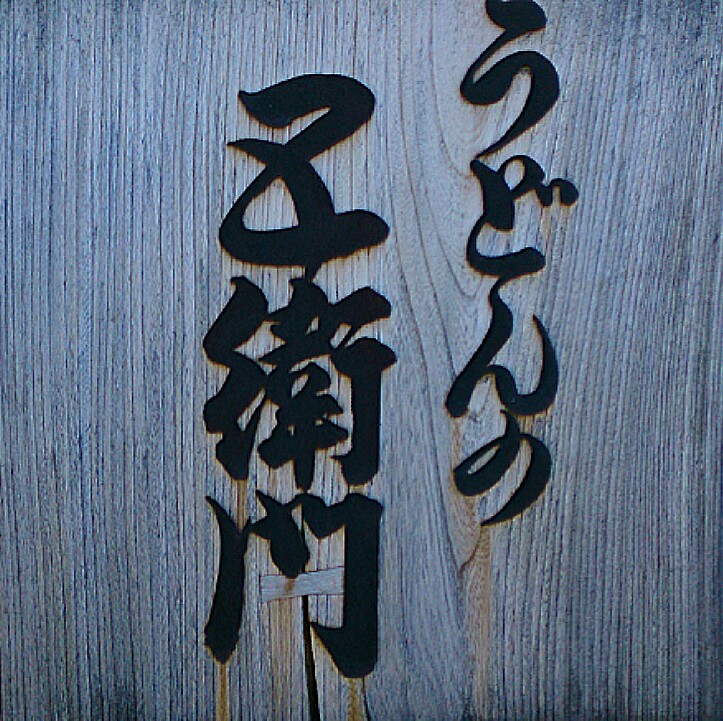 うどんの
五衛門